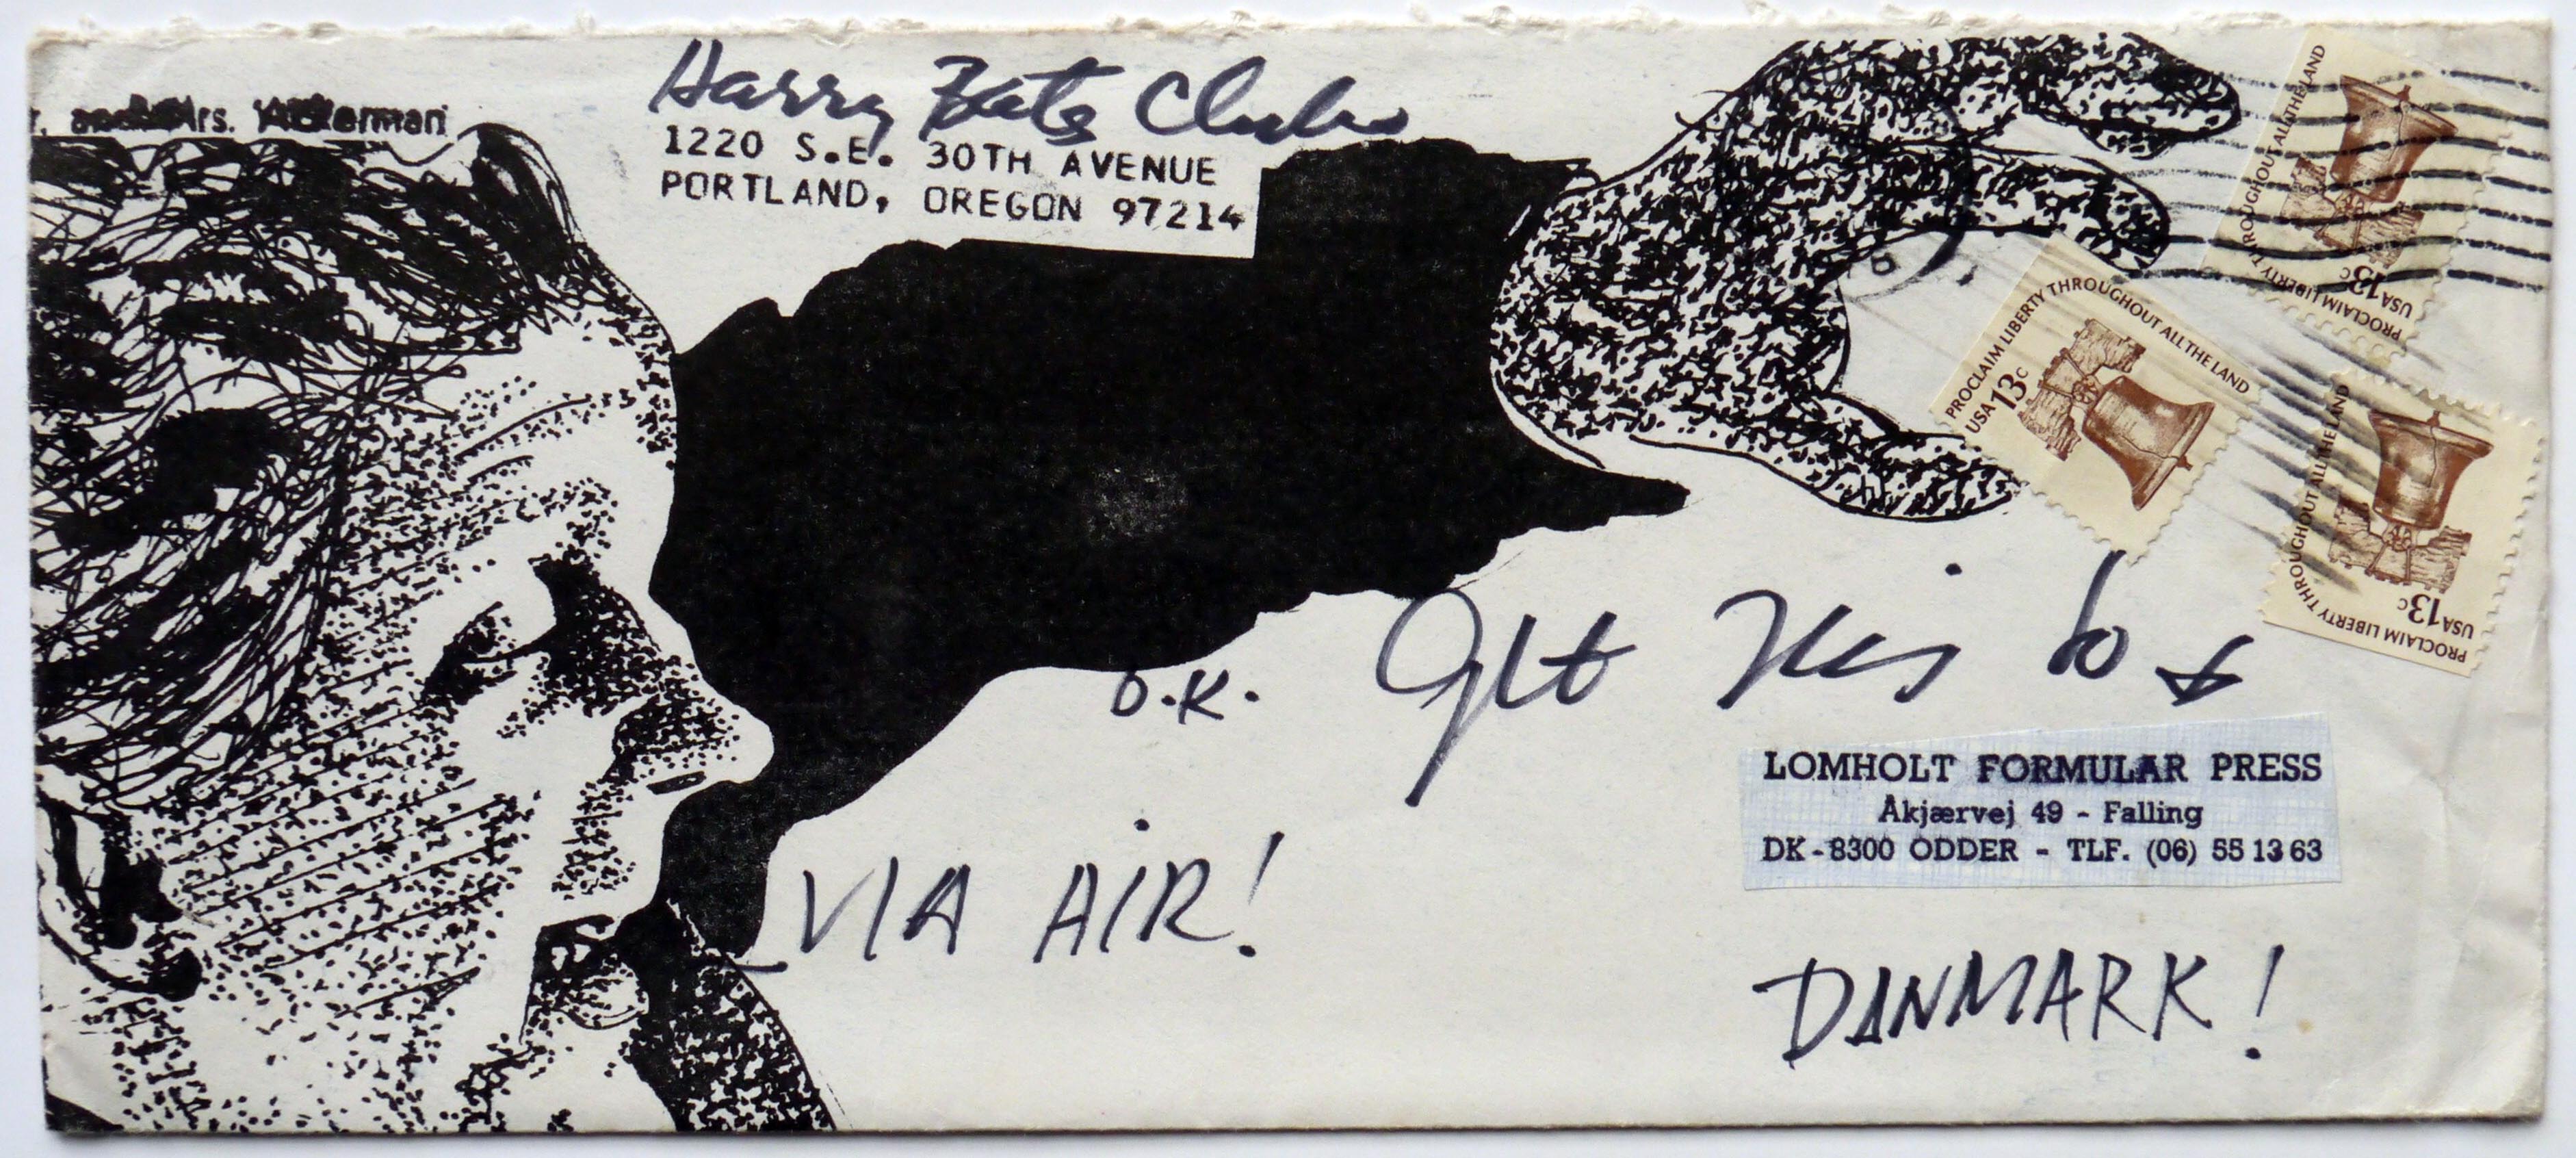 Mrs. Ackerman
Harry Bates Clubs
1220 S.E. 30TH AVENUE
PORTLAND, OREGON 97214
PROCLAIM LIBERTY THROUGHOUT ALL THE LAND
USA 13c
PROCLAIM LIBERTY THROUGHOUT ALL THE LAND
USA 13c
PROCLAIM LIBERTY THROUGHOUT ALL THE LAND
USA 13c
O.K. Get this to
LOMHOLT FORMULAR PRESS
Akjærvej 49 - Falling
DK-8300 ODDER - TLF. (06) 55 13 63
VIA AIR!
DANMARK!